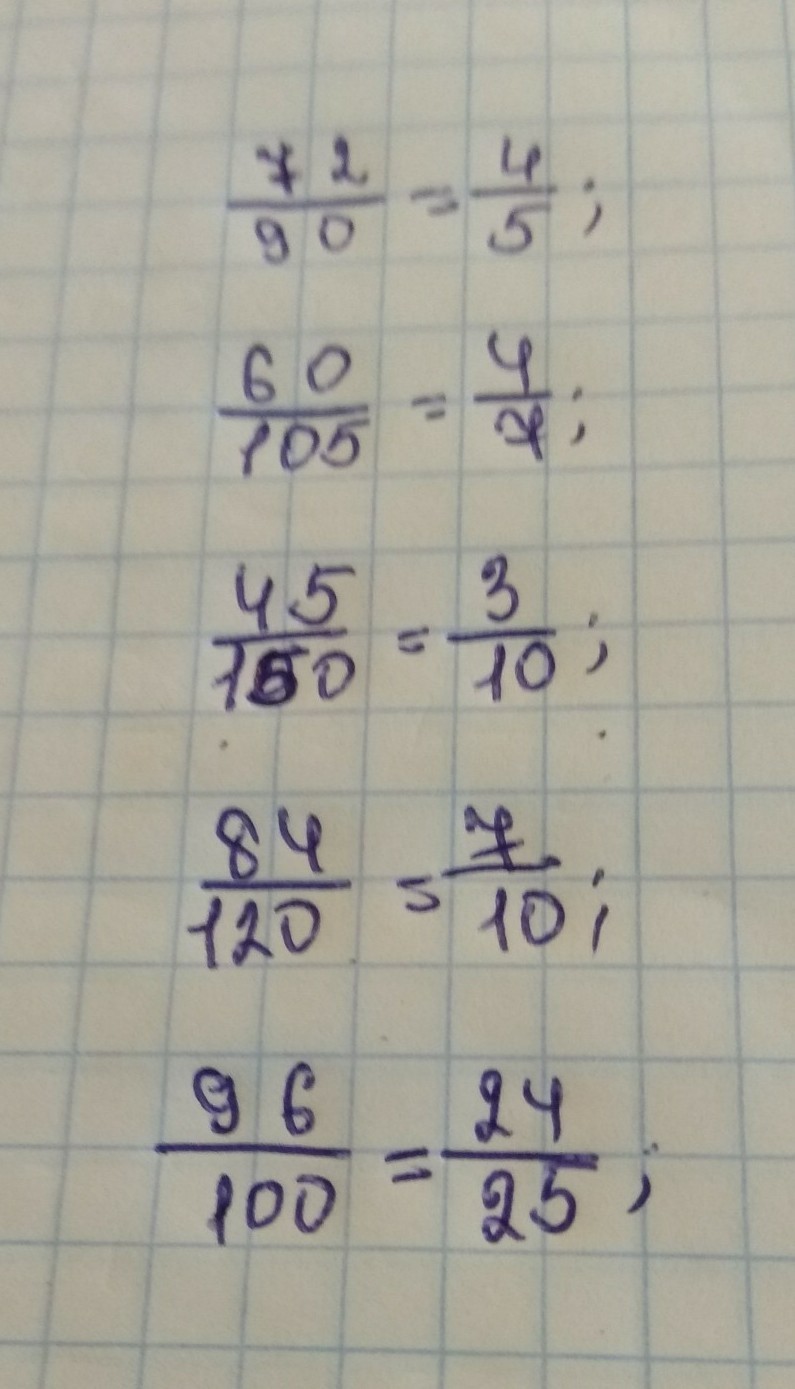 72/90 = 4/5;
60/105 = 4/7;
45/150 = 3/10;
84/120 = 7/10;
96/100 = 24/25;